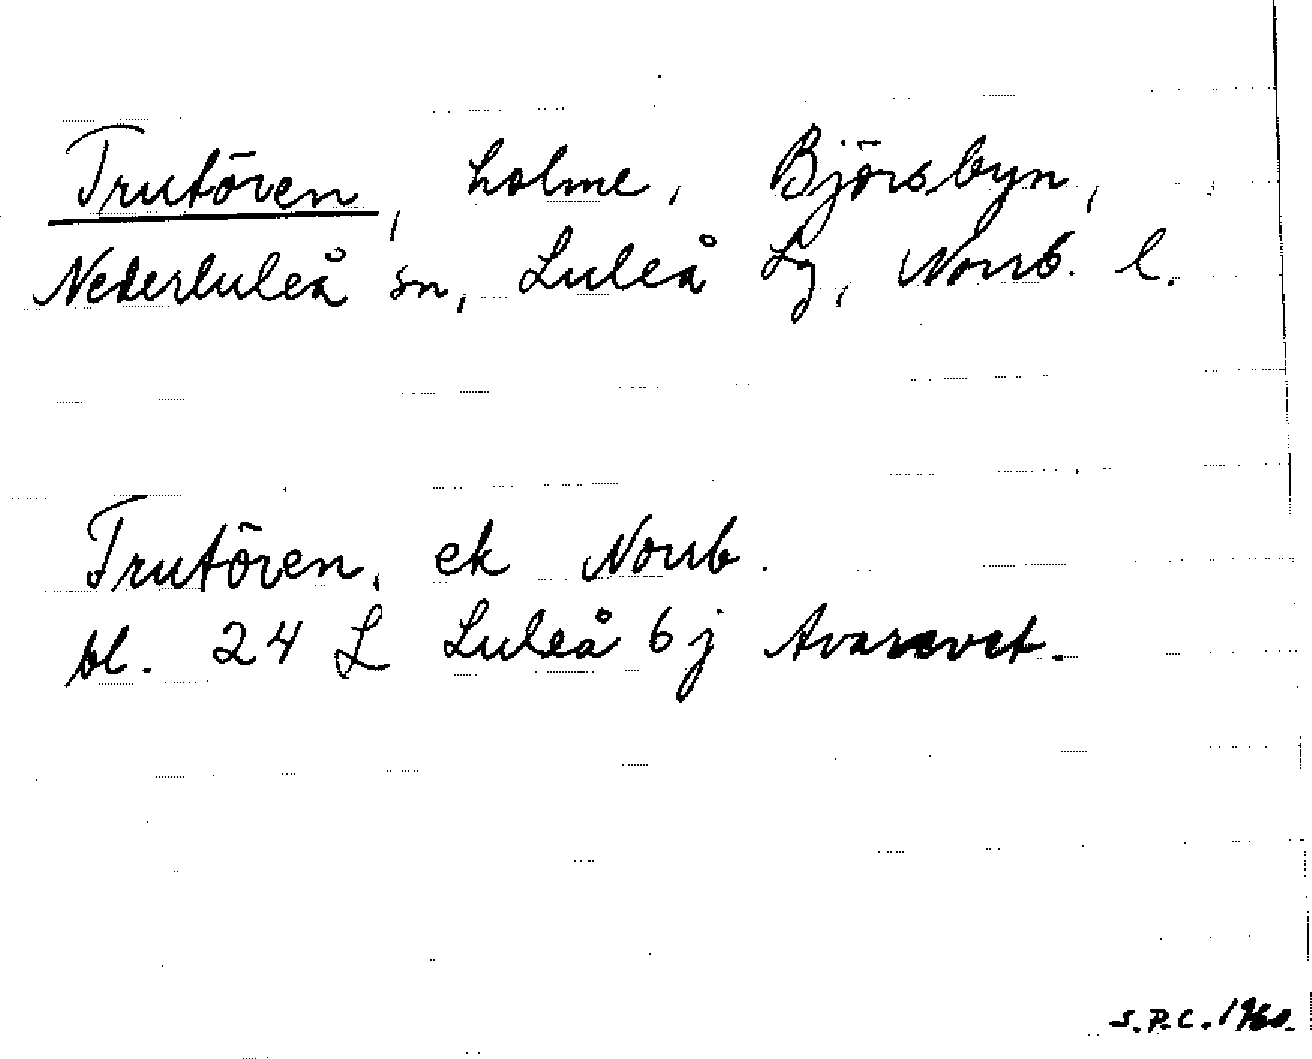 Trutören, holme, Björsbyn,
Nederluleå sn, Luleå lg, Norrb. l.
Trutören, ek Norrb.
bl. 24 L Luleå 6j Avaravet.
S.P.C. 1960.